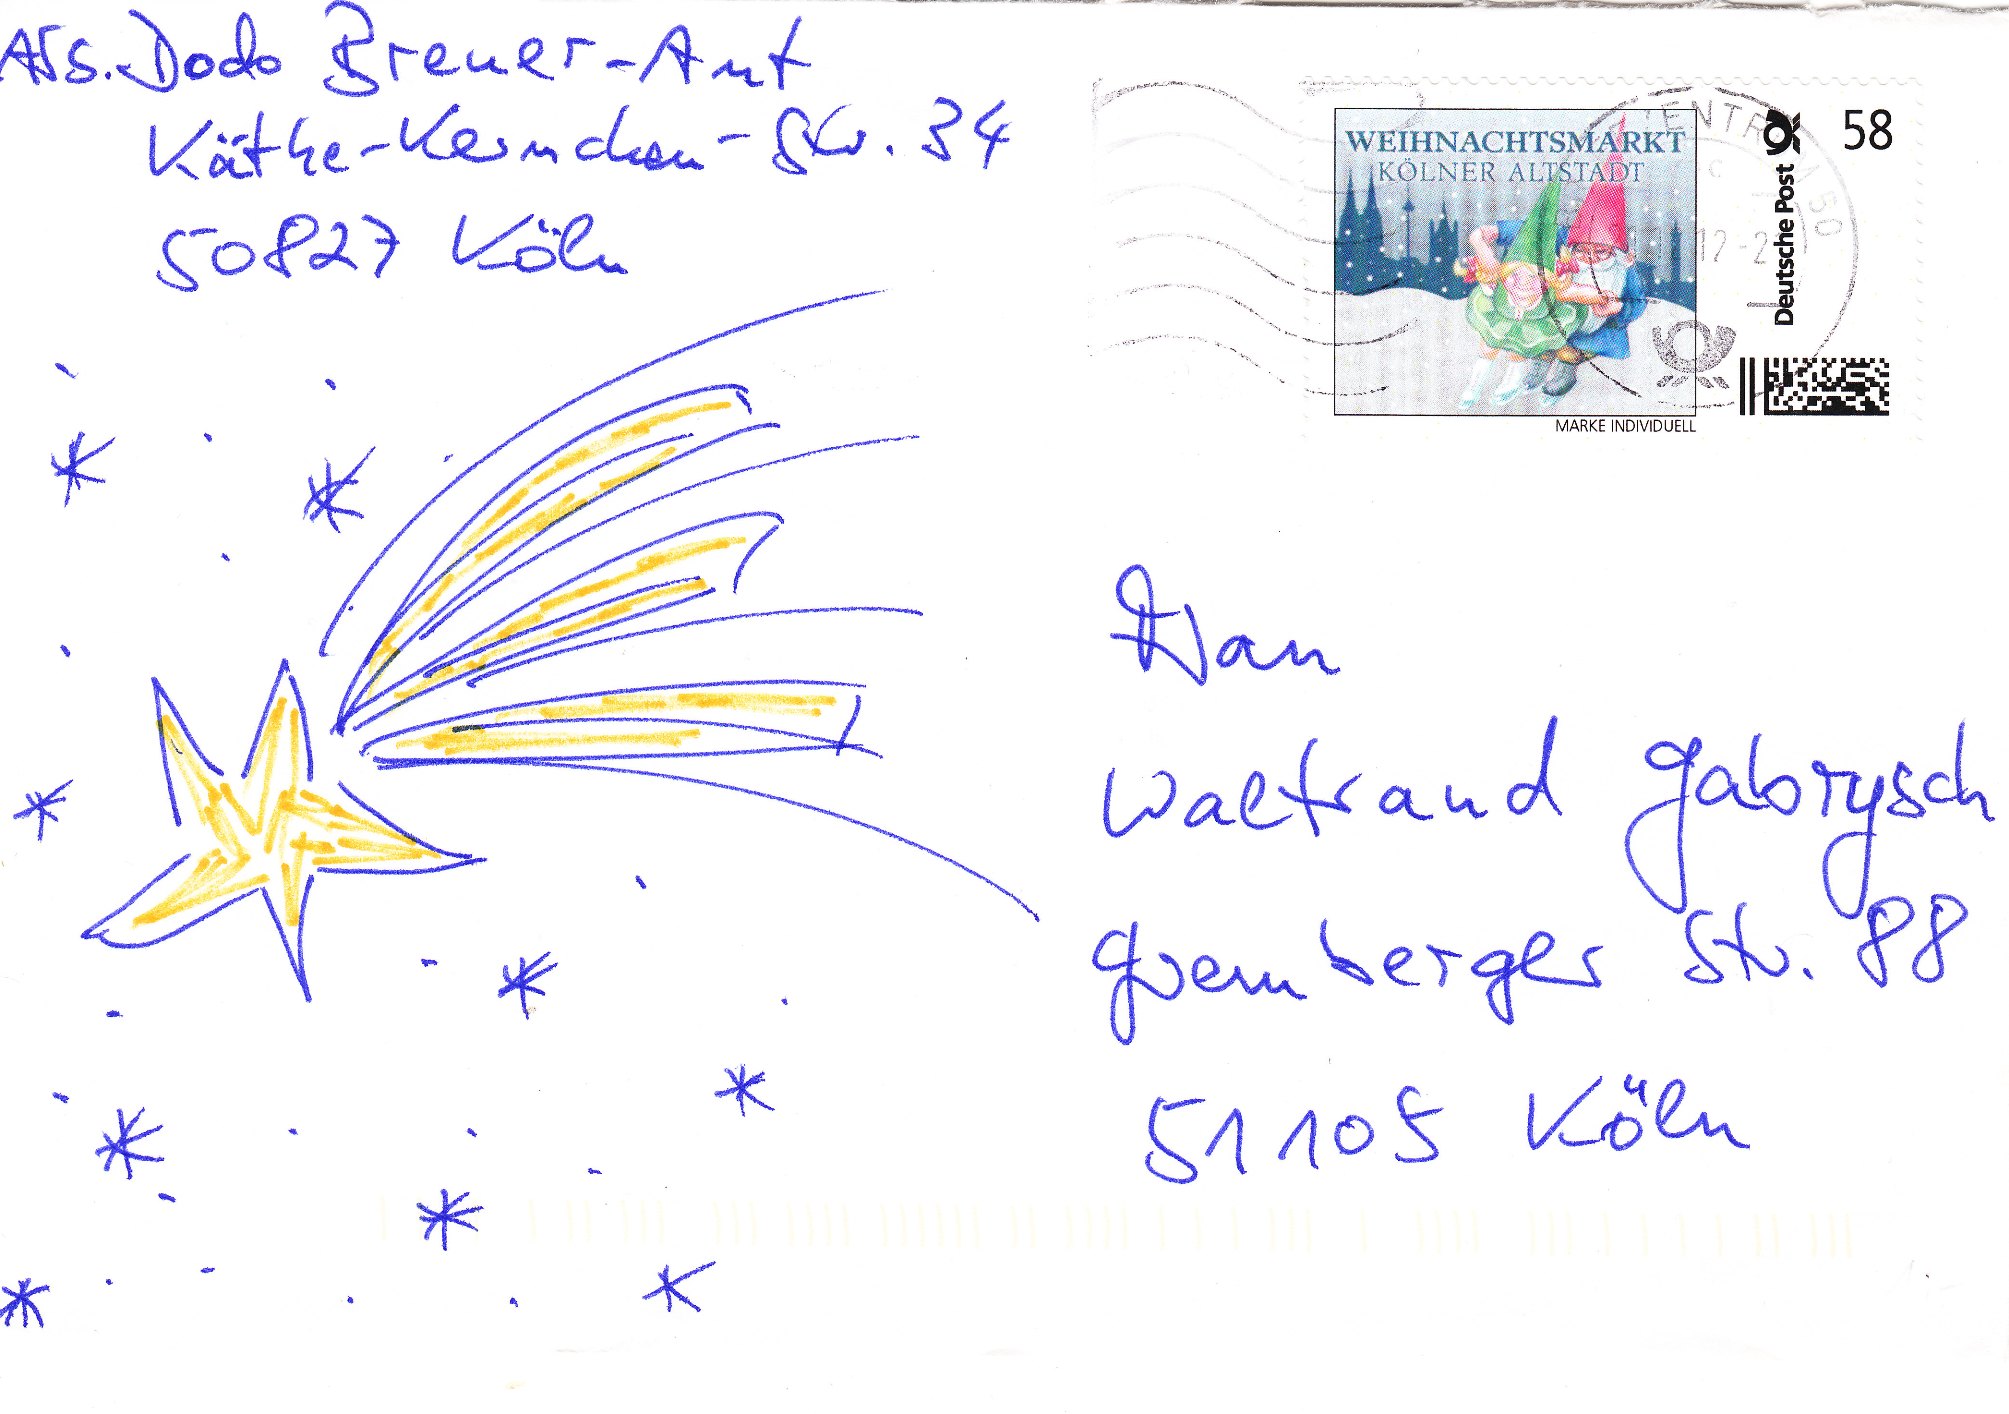 Abs. Dodo Breuer-Aut
Käthe-Kernchen-Str. 34
50827 Köln
WEIHNACHTSMARKT
KÖLNER ALTSTADT
Deutsche Post
58
MARKE INDIVIDUELL
50
12
An
Waltraud Gaborysch
Gremberger Str. 88
51105 Köln